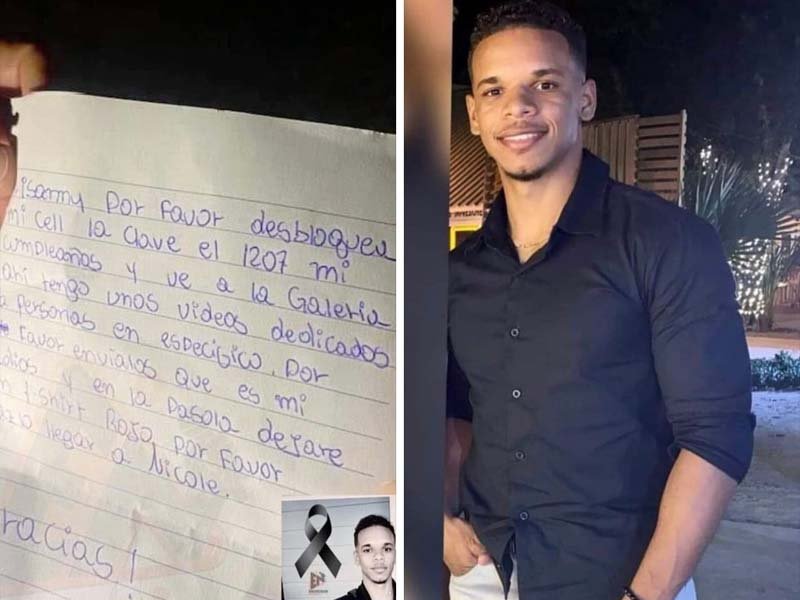 por favor desbloquea
mi cell la clave el 1207 mi
cumpleaños y ve a la Galeria
ahi tengo unos videos dedicados
a personas en especisico. Por
favor envialos que es mi
adios y en la pasola dejare
un t-shirt Rojo por favor
llegar a Nicole.
Gracias!